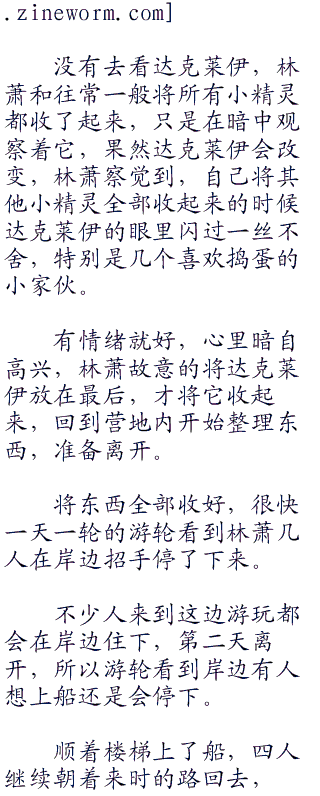 .zineworm.com]
没有去看达克莱伊，林
萧和往常一般将所有小精灵
都收了起来，只是在暗中观
察着它，果然达克莱伊会改
变，林萧察觉到，自己将其
他小精灵全部收起来的时候
达克莱伊的眼里闪过一丝不
舍，特别是几个喜欢捣蛋的
小家伙。
有情绪就好，心里暗自
高兴，林萧故意的将达克莱
伊放在最后，才将它收起
来，回到营地内开始整理东
西，准备离开。
将东西全部收好，很快
一天一轮的游轮看到林萧几
人在岸边招手停了下来。
不少人来到这边游玩都
会在岸边住下，第二天离
开，所以游轮看到岸边有人
想上船还是会停下。
顺着楼梯上了船，四人
继续朝着来时的路回去，